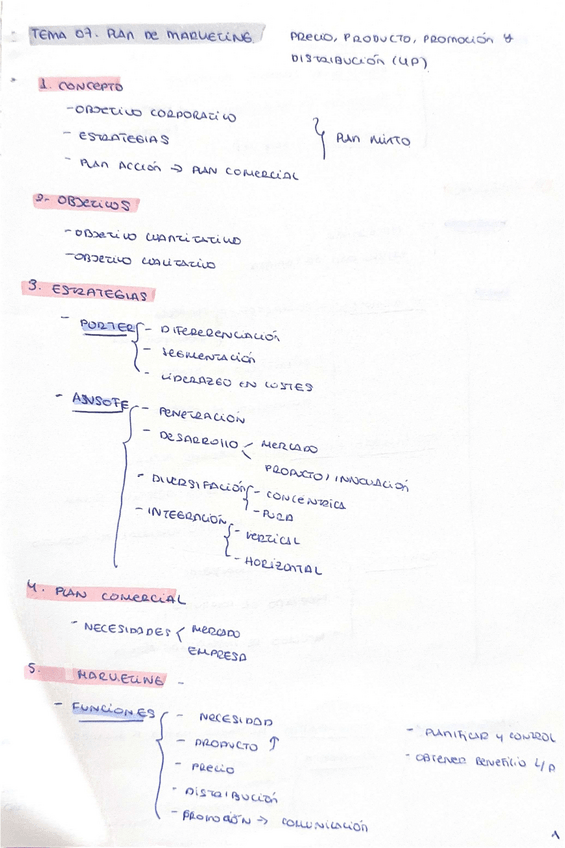 TEMA 07. PLAN DE MARKETING.
PRECIO, PRODUCTO, PROMOCIÓN Y
DISTRIBUCIÓN (4P)
1. CONCEPTO
- OBJETIVO CORPORATIVO
- ESTRATEGIAS
- PLAN ACCIÓN → PLAN COMERCIAL
} PLAN MIXTO
2- OBJETIVOS
- OBJETIVO CUANTITATIVO
- OBJETIVO CUALITATIVO
3. ESTRATEGIAS
- PORTER { - DIFERERENCIACIÓN
- SEGMENTACIÓN
- LIDERAZGO EN COSTES
- ANSOFF { - PENETRACIÓN
- DESARROLLO < MERCADO
PRODUCTO, INNOVACIÓN
- DIVERSIFACIÓN { - CONCÉNTRICA
- PURA
- INTEGRACIÓN { - VERTICAL
- HORIZONTAL
4. PLAN COMERCIAL
- NECESIDADES < MERCADO
EMPRESA
5. MARKETING -
- FUNCIONES { - NECESIDAD
- PRODUCTO ↑
- PRECIO
- DISTRIBUCIÓN
- PROMOCIÓN → COMUNICACIÓN
- PLANIFICAR Y CONTROL
- OBTENER BENEFICIO L/P
1